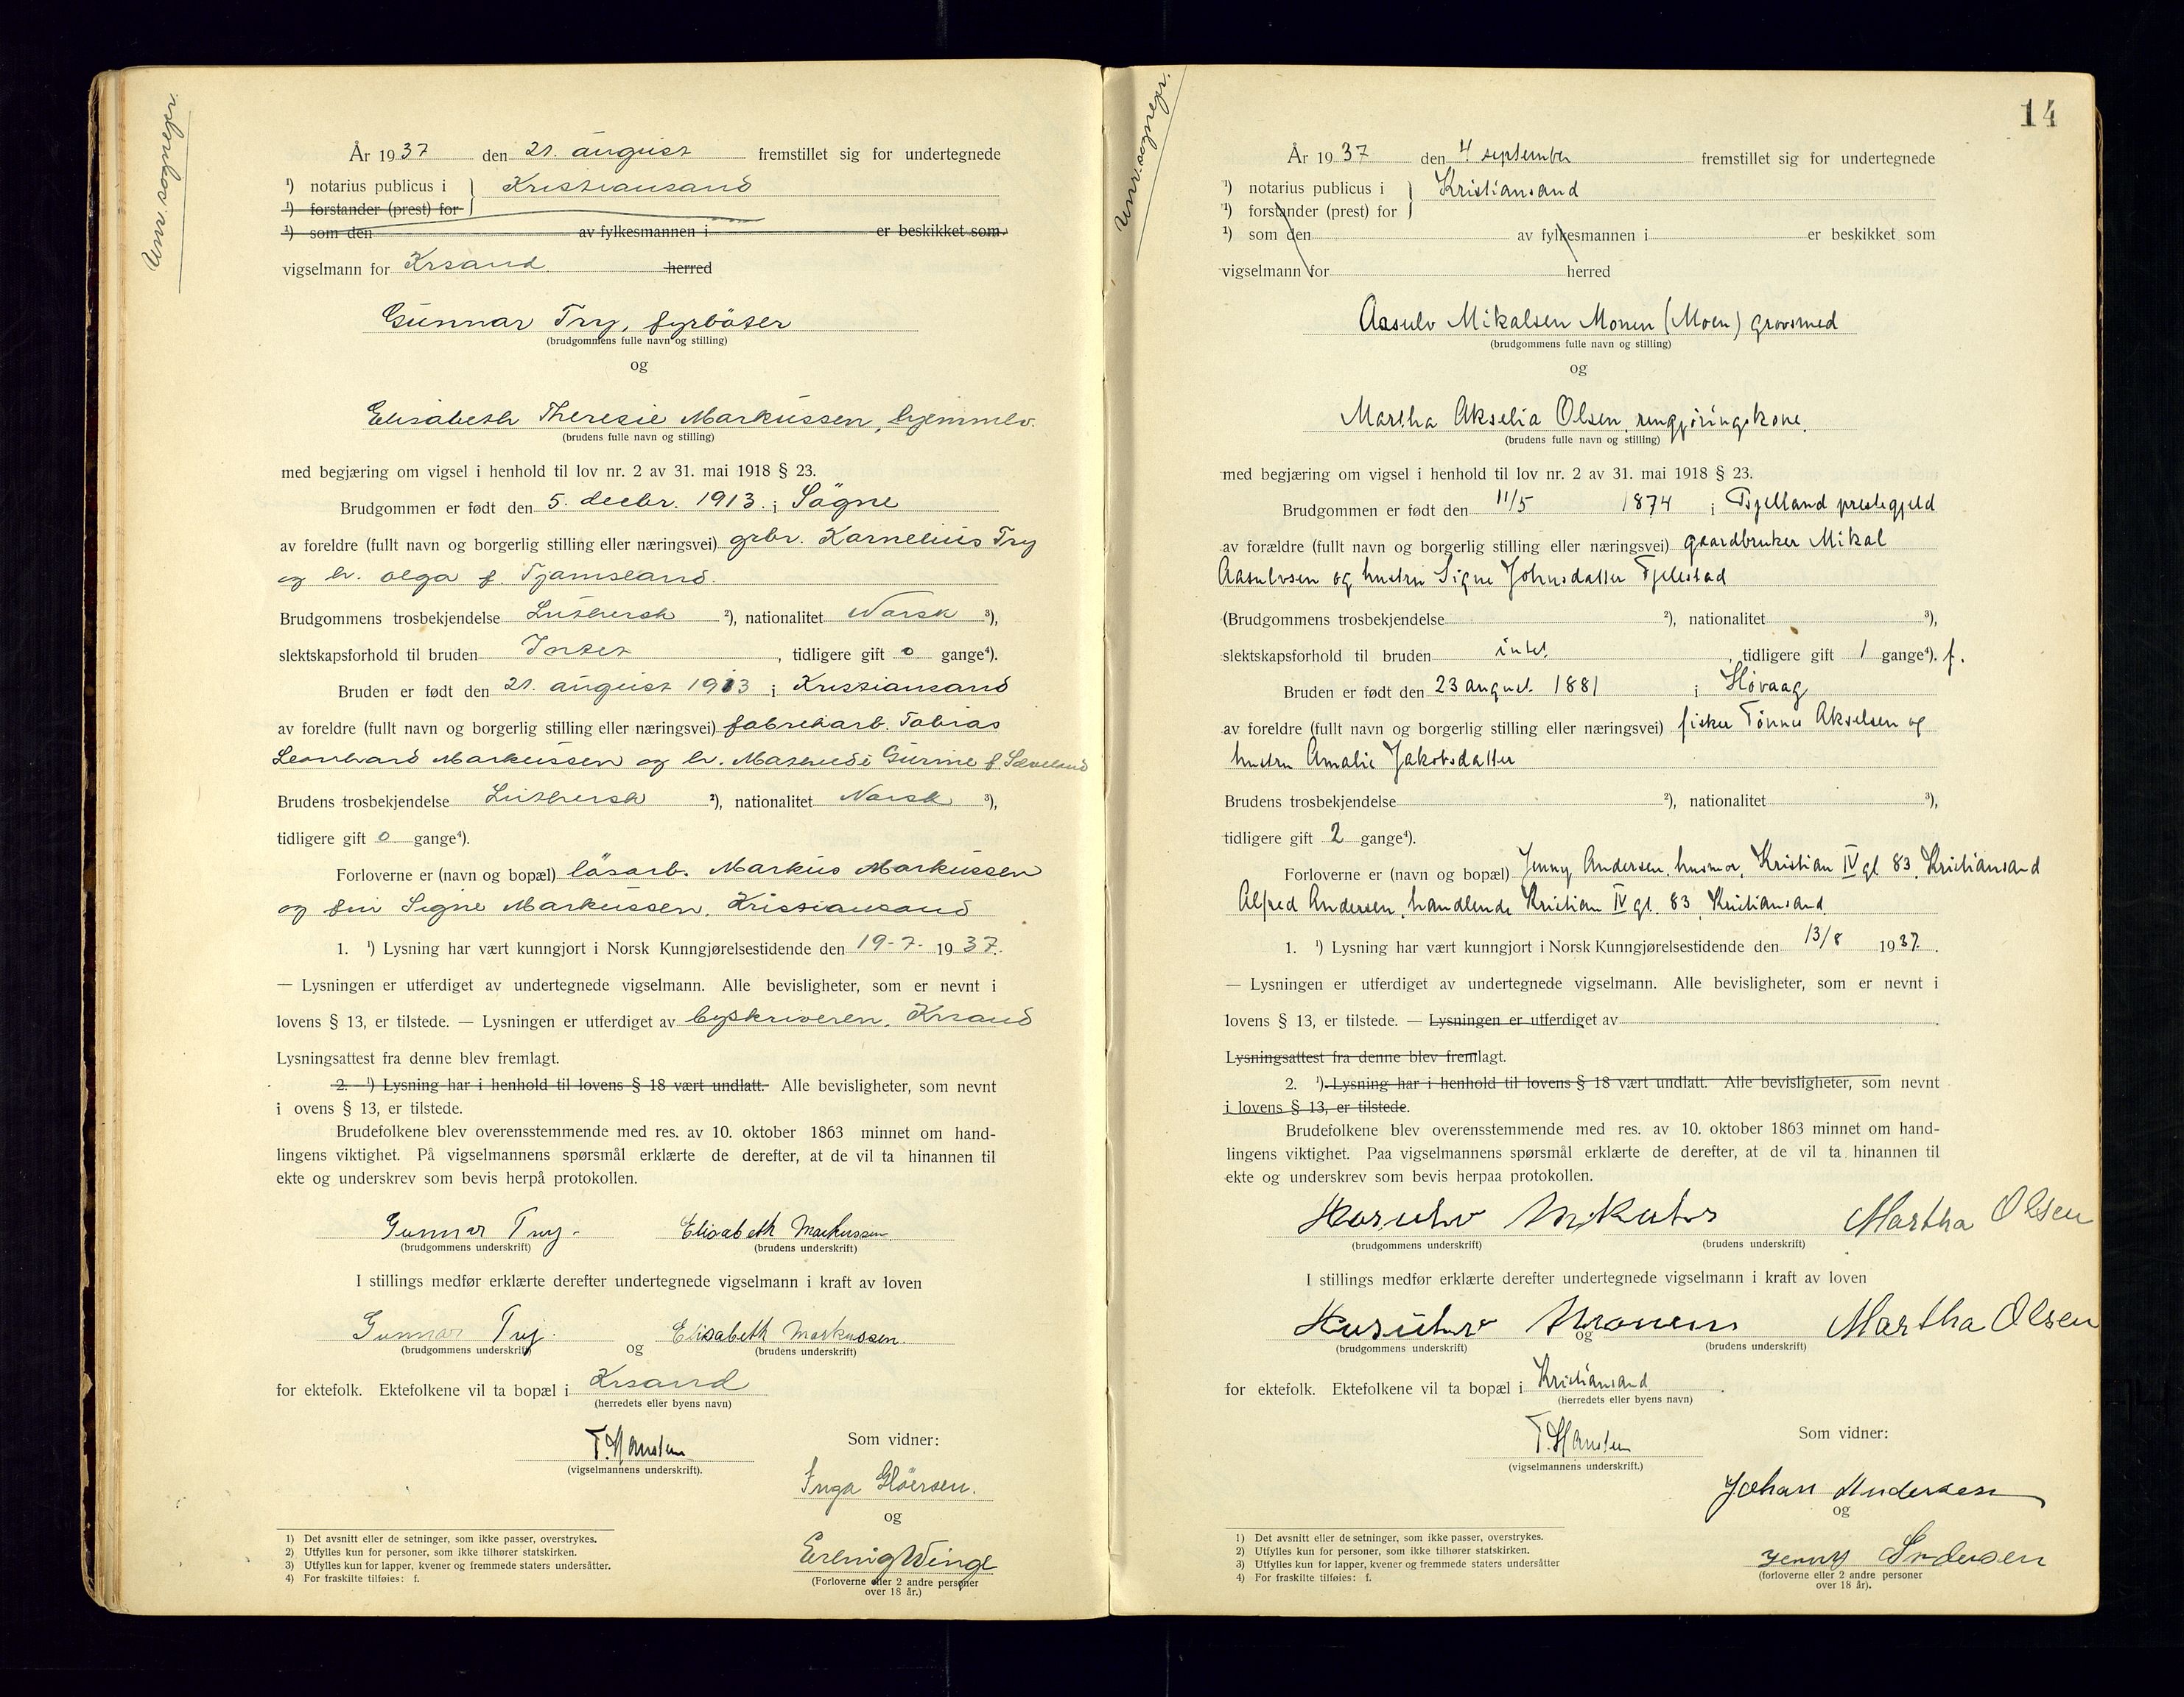 Unr. sognepr.
År 1937 den 21. august fremstillet sig for undertegnede
¹) notarius publicus i } Kristiansand
¹) forstander (prest) for
¹) som den av fylkesmannen i er beskikket som
vigselmann for Krsand herred
Gunnar Try, fyrböter
(brudgommens fulle navn og stilling)
og
Elisabeth Theresie Markussen, hjemmev.
(brudens fulle navn og stilling)
med begjæring om vigsel i henhold til lov nr. 2 av 31. mai 1918 § 23.
Brudgommen er født den 5. decbr. 1913 i Sögne
av foreldre (fullt navn og borgerlig stilling eller næringsvei) grbr. Kornelius Try
og h. Olga f. Tjamsland.
Brudgommens trosbekjendelse Luthersk ²), nationalitet Norsk ³),
slektskapsforhold til bruden Intet, tidligere gift 0 gange⁴).
Bruden er født den 21. august 1913 i Kristiansand
av foreldre (fullt navn og borgerlig stilling eller næringsvei) fabrikarb. Tobias
Leonhard Markussen og h. Mathilde Gurine f.
Brudens trosbekjendelse Luthersk ²), nationalitet Norsk ³),
tidligere gift 0 gange⁴).
Forloverne er (navn og bopæl) lösarb. Markus Markussen
og fru Signe Markussen, Kristiansand
1. ¹) Lysning har vært kunngjort i Norsk Kunngjørelsestidende den 19-7- 1937.
— Lysningen er utferdiget av undertegnede vigselmann. Alle bevisligheter, som er nevnt i
lovens § 13, er tilstede. — Lysningen er utferdiget av byskriveren, Krsand
Lysningsattest fra denne blev fremlagt.
2. ¹) Lysning har i henhold til lovens § 18 vært undlatt. Alle bevisligheter, som nevnt
i ovens § 13, er tilstede.
Brudefolkene blev overensstemmende med res. av 10. oktober 1863 minnet om hand-
lingens viktighet. På vigselmannens spørsmål erklærte de derefter, at de vil ta hinannen til
ekte og underskrev som bevis herpå protokollen.
Gunnar Try. Elisabeth Markussen
(brudgommens underskrift) (brudens underskrift)
I stillings medfør erklærte derefter undertegnede vigselmann i kraft av loven
Gunnar Try. Elisabeth Markussen.
(brudgommens underskrift) og (brudens underskrift)
for ektefolk. Ektefolkene vil ta bopæl i Krsand
(herredets eller byens navn)
T. Hansten
(vigselmannens underskrift).
Som vidner:
Inga
og
Winge
(Forloverne eller 2 andre personer
over 18 år.)
1) Det avsnitt eller de setninger, som ikke passer, overstrykes.
2) Utfylles kun for personer, som ikke tilhører statskirken.
3) Utfylles kun for lapper, kvener og fremmede staters undersåtter.
4) For fraskilte tilføies: f.
14
Unr. sognepr.
År 1937 den 4. september fremstillet sig for undertegnede
¹) notarius publicus i } Kristiansand
¹) forstander (prest) for
¹) som den av fylkesmannen i er beskikket som
vigselmann for herred
Aasulv Mikalsen Monen (Moen) grovsmed
(brudgommens fulle navn og stilling)
og
Martha Akselia Olsen, rengjøringskone.
(brudens fulle navn og stilling)
med begjæring om vigsel i henhold til lov nr. 2 av 31. mai 1918 § 23.
Brudgommen er født den 11/5 1874 i Bjelland prestegjeld
av forældre (fullt navn og borgerlig stilling eller næringsvei) gaardbruker Mikal
Aasulvsen og hustru Signe Johnsdatter Fjelestad
(Brudgommens trosbekjendelse ²), nationalitet ³),
slektskapsforhold til bruden intet, tidligere gift 1 gange⁴). f.
Bruden er født den 23 august 1881 i Høvaag
av foreldre (fullt navn og borgerlig stilling eller næringsvei) fisker Tønnes Akselsen og
hustru Amalie Jakobsdatter
Brudens trosbekjendelse ²), nationalitet ³),
tidligere gift 2 gange⁴).
Forloverne er (navn og bopæl) Jenny Andersen, husmor, Kristian IV gt 83, Kristiansand
Alfred Andersen, handlende Kristian IV gt. 83, Kristiansand
1. ¹) Lysning har vært kunngjort i Norsk Kunngjørelsestidende den 13/8 1937.
— Lysningen er utferdiget av undertegnede vigselmann. Alle bevisligheter, som er nevnt i
lovens § 13, er tilstede. — Lysningen er utferdiget av
Lysningsattest fra denne blev fremlagt.
2. ¹) Lysning har i henhold til lovens § 18 vært undlatt. Alle bevisligheter, som nevnt
i lovens § 13, er tilstede.
Brudefolkene blev overensstemmende med res. av 10. oktober 1863 minnet om hand-
lingens viktighet. Paa vigselmannens spørsmål erklærte de derefter, at de vil ta hinannen til
ekte og underskrev som bevis herpaa protokollen.
Martha Olsen
(brudgommens underskrift) (brudens underskrift)
I stillings medfør erklærte derefter undertegnede vigselmann i kraft av loven
Martha Olsen
(brudgommens underskrift) og (brudens underskrift)
for ektefolk. Ektefolkene vil ta bopæl i Kristiansand.
(herredets eller byens navn)
T. Hansten
(vigselmannens underskrift.)
Som vidner:
Johan Andersen
og
Jenny Andersen
(forloverne eller 2 andre personer
over 18 år).
1) Det avsnitt eller de setninger, som ikke passer, overstrykes.
2) Utfylles kun for personer, som ikke tilhører statskirken.
3) Utfylles kun for lapper, kvener og fremmede staters undersåtter
4) For fraskilte tilføies: f.